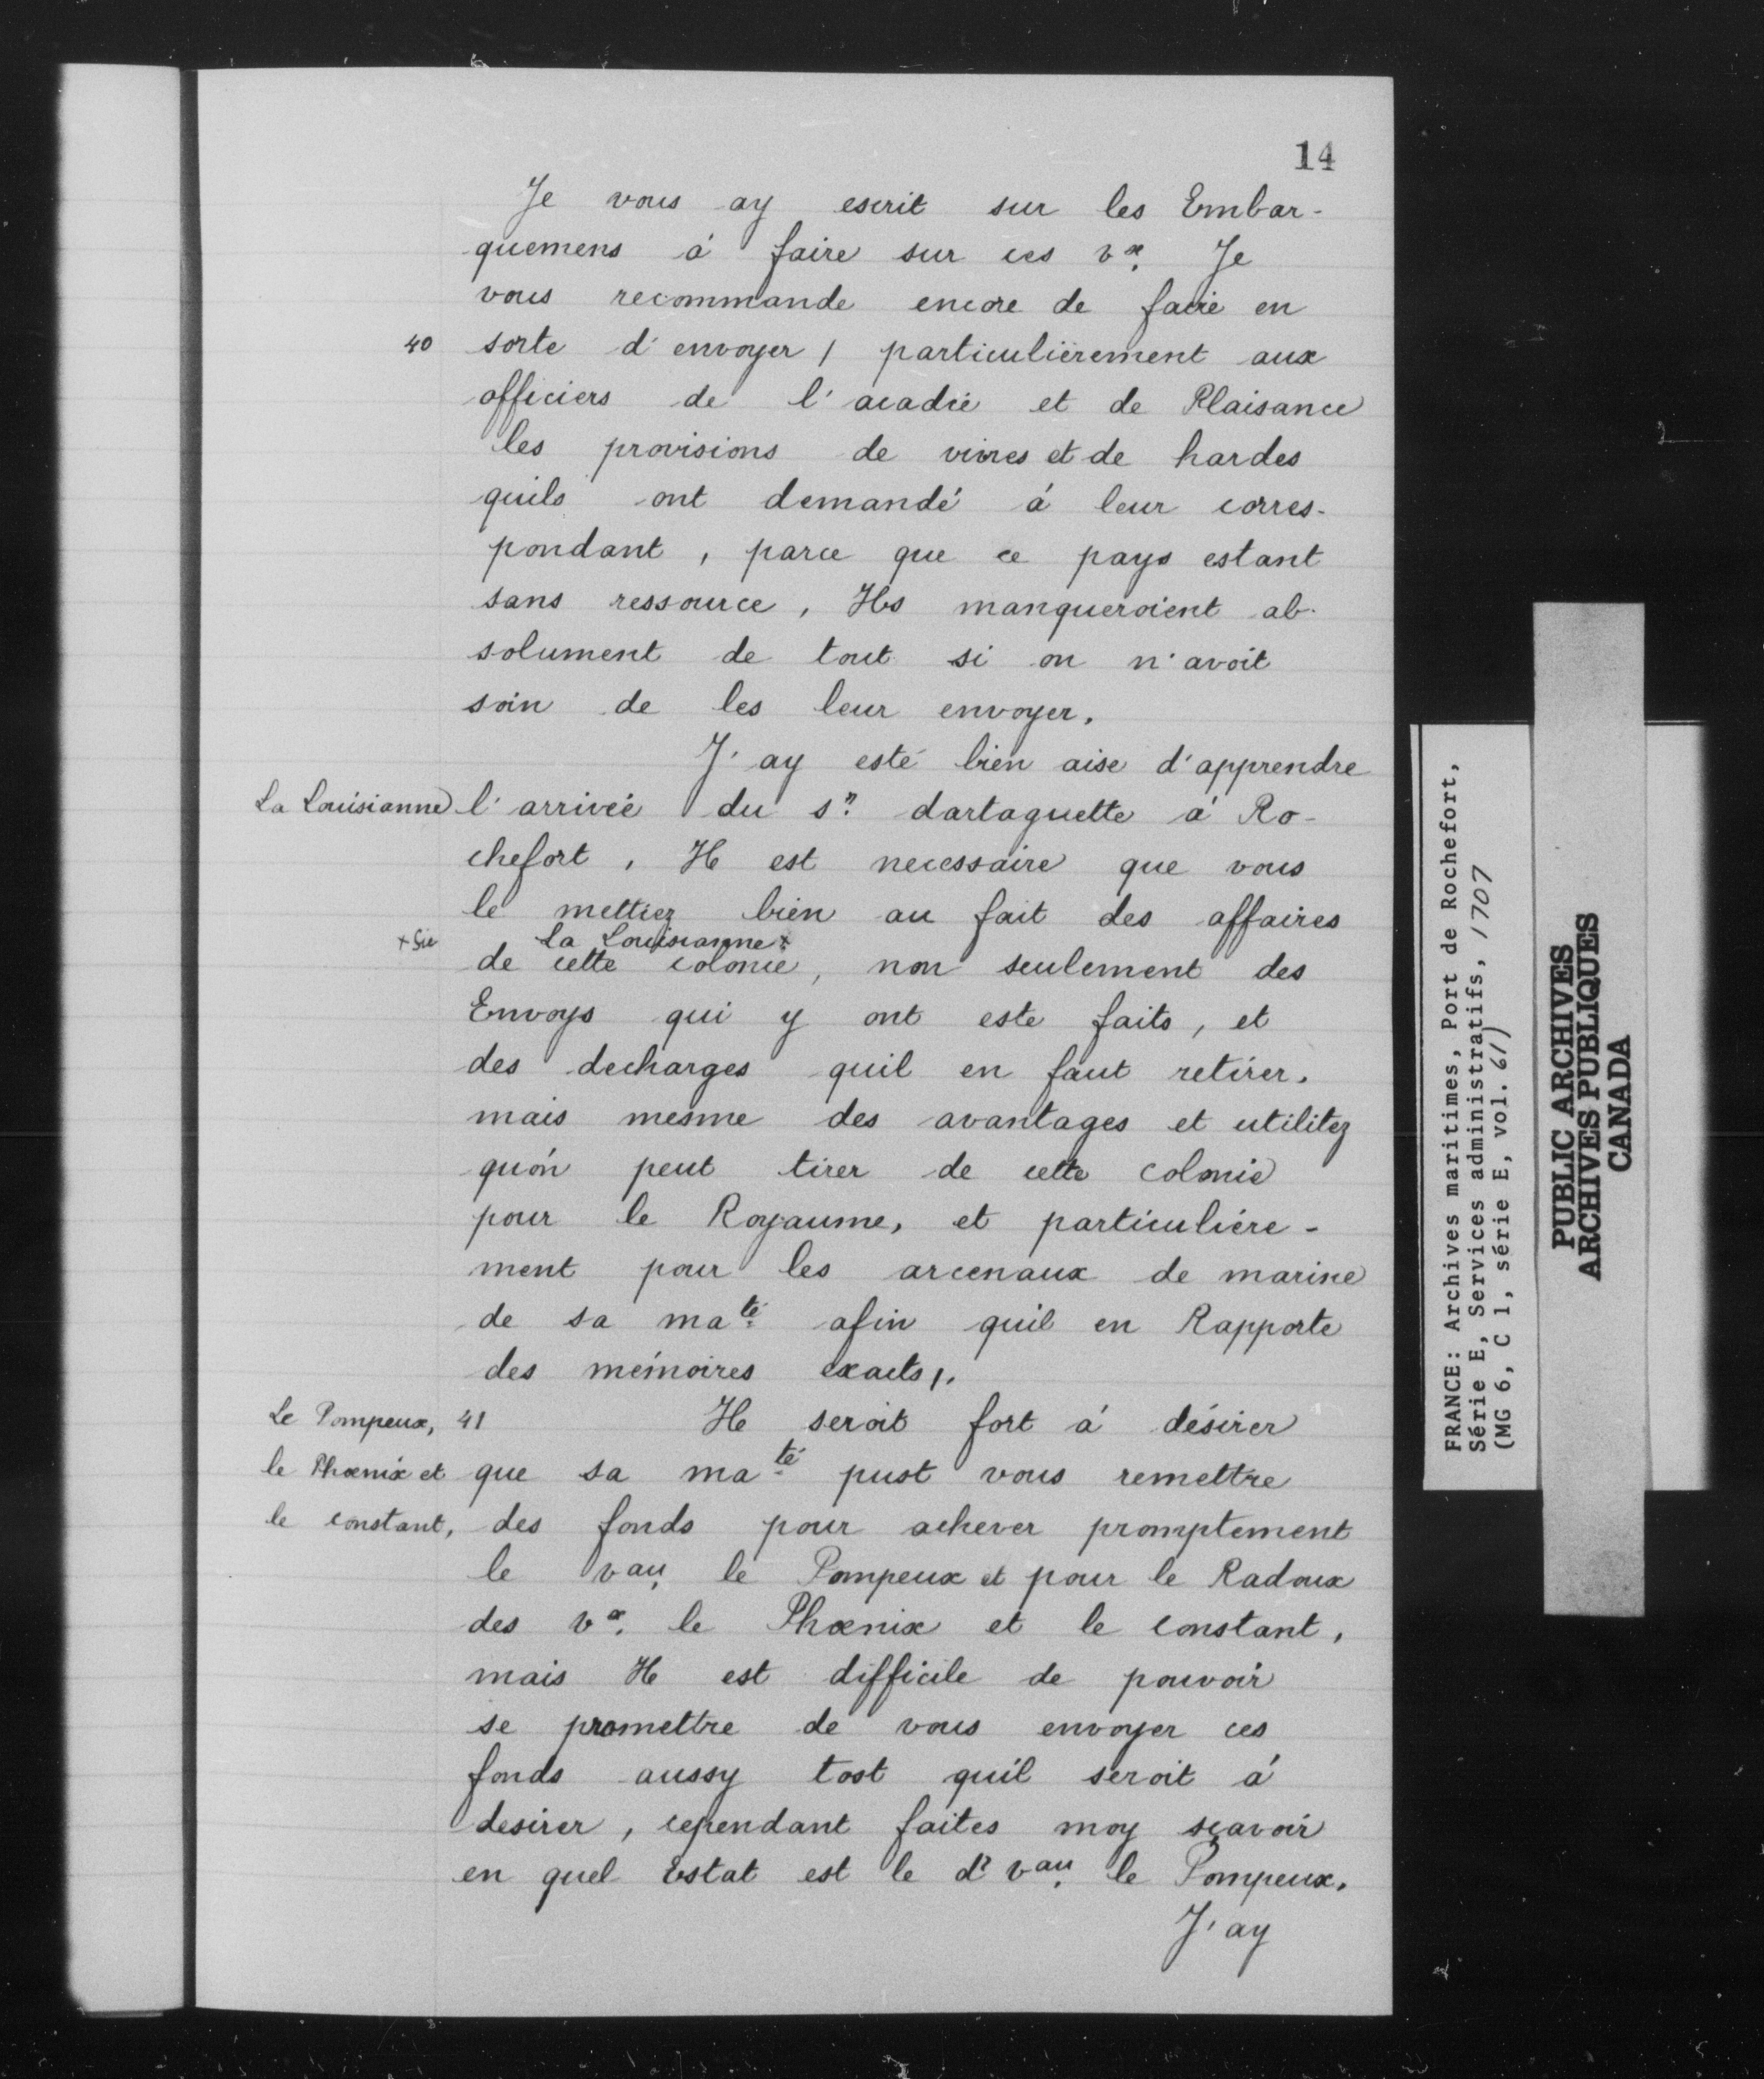 14
Je vous ay escrit sur les Embar-
quemens à faire sur ces vx. Je
vous recommande encore de faire en
40 sorte d'envoyer / particulièrement aux
officiers de l'acadie et de Plaisance
les provisions de vivres et de hardes
quils ont demandé à leur corres-
pondant, parce que ce pays estant
sans ressource, Ils manqueroient ab-
solument de tout si on n'avoit
soin de les leur envoyer.
J'ay esté bien aise d'apprendre
La Louisianne l'arrivée du sr. dartaguette à Ro-
chefort, Il est necessaire que vous
le mettiez bien au fait des affaires
+ Sic La Louisianne+
de cette colonie, non seulement des
Envoys qui y ont este faits, et
des decharges quil en faut retirer,
mais mesme des avantages et utilitez
qu'on peut tirer de cette colonie
pour le Royaume, et particulière-
ment pour les arcenaux de marine
de sa maté. afin quil en Rapporte
des mémoires exacts/.
Le Pompeux, 41 Il seroit fort à désirer
le Phœnix et que sa maté. pust vous remettre
le constant, des fonds pour achever promptement
le vau. le Pompeux et pour le Radoux
des vx. le Phœnix et le constant,
mais Il est difficile de pouvoir
se promettre de vous envoyer ces
fonds aussy tost quil seroit à
desirer, cependant faites moy sçavoir
en quel Estat est le dt vau. le Pompeux.
J'ay
FRANCE: Archives maritimes, Port de Rochefort,
Série E, Services administratifs, 1707
(MG 6, C 1, série E, vol. 61)
PUBLIC ARCHIVES
ARCHIVES PUBLIQUES
CANADA